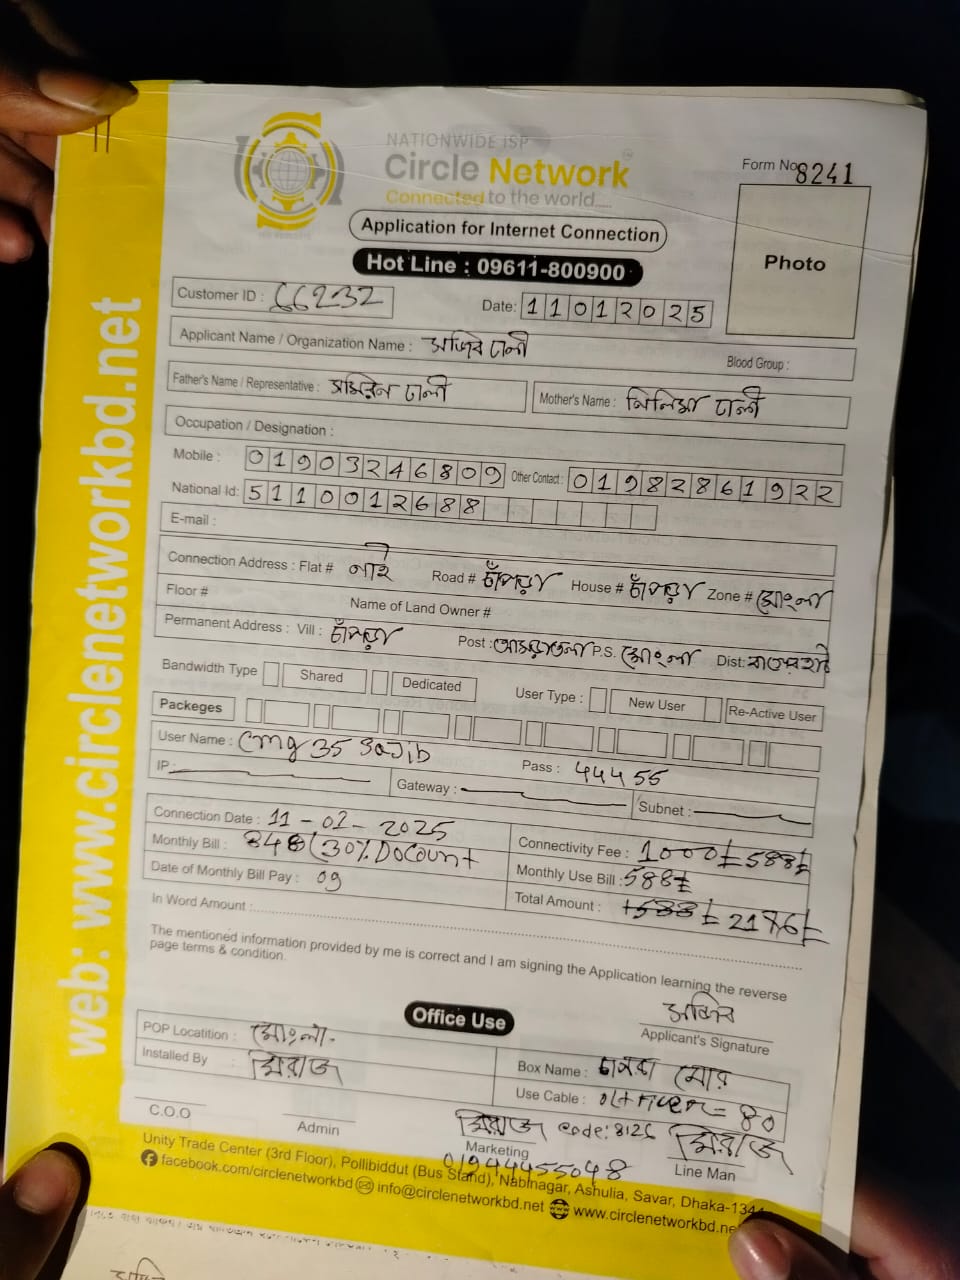 NATIONWIDE ISP
Circle Network
Connected to the world.....
Form No. 8241
Application for Internet Connection
Photo
Hot Line : 09611-800900
Customer ID : 66232
Date: 11012025
Applicant Name / Organization Name : সজিব ঢালী
Blood Group :
Father's Name / Representative : সমিরন ঢালী
Mother's Name : মিনিমা ঢালী
Occupation / Designation :
Mobile : 01903246809 Other Contact : 01982861922
National Id: 5110012688
E-mail :
Connection Address : Flat # নাই Road # চাঁপড়া House # চাঁপড়া Zone # মোংলা
Floor # Name of Land Owner #
Permanent Address : Vill : চাঁপড়া Post : P.S. মোংলা Dist:
Bandwidth Type Shared Dedicated User Type : New User Re-Active User
Packeges
User Name : cmg35 sajib Pass : 44455
IP: Gateway : Subnet :
Connection Date : 11-01-2025 Connectivity Fee : 1000 588
Monthly Bill : 840 (30% Docount Monthly Use Bill : 588
Date of Monthly Bill Pay : 09 Total Amount :
In Word Amount :
The mentioned information provided by me is correct and I am signing the Application learning the reverse
page terms & condition.
সজিব
Applicant's Signature
Office Use
POP Locatition : মোংলা
Installed By মিরাজ
Box Name : মোর
Use Cable : = 80
C.O.O Admin
মিরাজ code: 8126
Marketing
01944455048
মিরাজ
Line Man
Unity Trade Center (3rd Floor), Pollibiddut (Bus Stand), Nabinagar, Ashulia, Savar, Dhaka-1344
facebook.com/circlenetworkbd info@circlenetworkbd.net www.circlenetworkbd.ne
web: www.circlenetworkbd.net